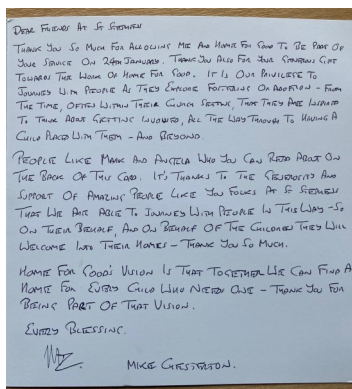 DEAR FRIENDS AT ST STEPHEN
THANK YOU SO MUCH FOR ALLOWING ME AND HOME FOR GOOD TO BE PART OF
YOUR SERVICE ON 24TH JANUARY. THANK YOU ALSO FOR YOUR GENEROUS GIFT
TOWARDS THE WORK OF HOME FOR GOOD. IT IS OUR PRIVILEGE TO
JOURNEY WITH PEOPLE AS THEY EXPLORE FOSTERING OR ADOPTION - FROM
THE TIME, OFTEN WITHIN THEIR CHURCH SETTING, THAT THEY ARE INSPIRED
TO THINK ABOUT GETTING INVOLVED, ALL THE WAY THROUGH TO HAVING A
CHILD PLACED WITH THEM - AND BEYOND.
PEOPLE LIKE MARK AND ANGELA WHO YOU CAN READ ABOUT ON
THE BACK OF THIS CARD. IT'S THANKS TO THE GENEROSITY AND
SUPPORT OF AMAZING PEOPLE LIKE YOU FOLKS AT ST STEPHENS
THAT WE ARE ABLE TO JOURNEY WITH PEOPLE IN THIS WAY - SO
ON THEIR BEHALF, AND ON BEHALF OF THE CHILDREN THEY WILL
WELCOME INTO THEIR HOMES - THANK YOU SO MUCH.
HOME FOR GOOD'S VISION IS THAT TOGETHER WE CAN FIND A
HOME FOR EVERY CHILD WHO NEEDS ONE - THANK YOU FOR
BEING PART OF THAT VISION.
EVERY BLESSING.
MIKE CHESTERTON.